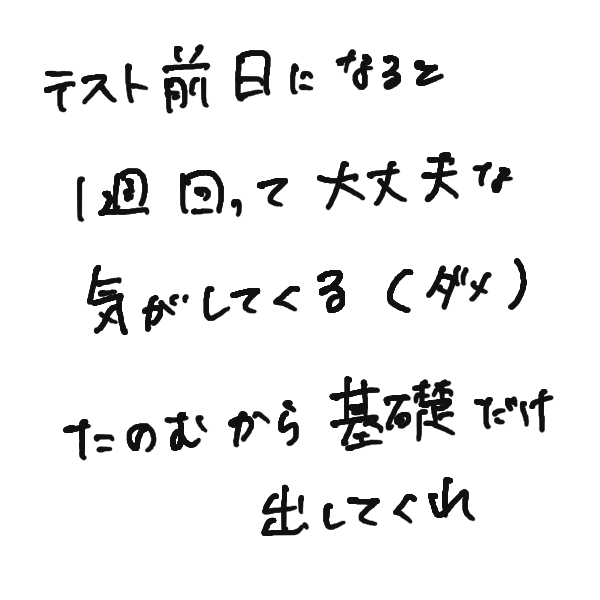 テスト前日になると
1週回って大丈夫な
気がしてくる(ダメ)
たのむから基礎だけ
出してくれ